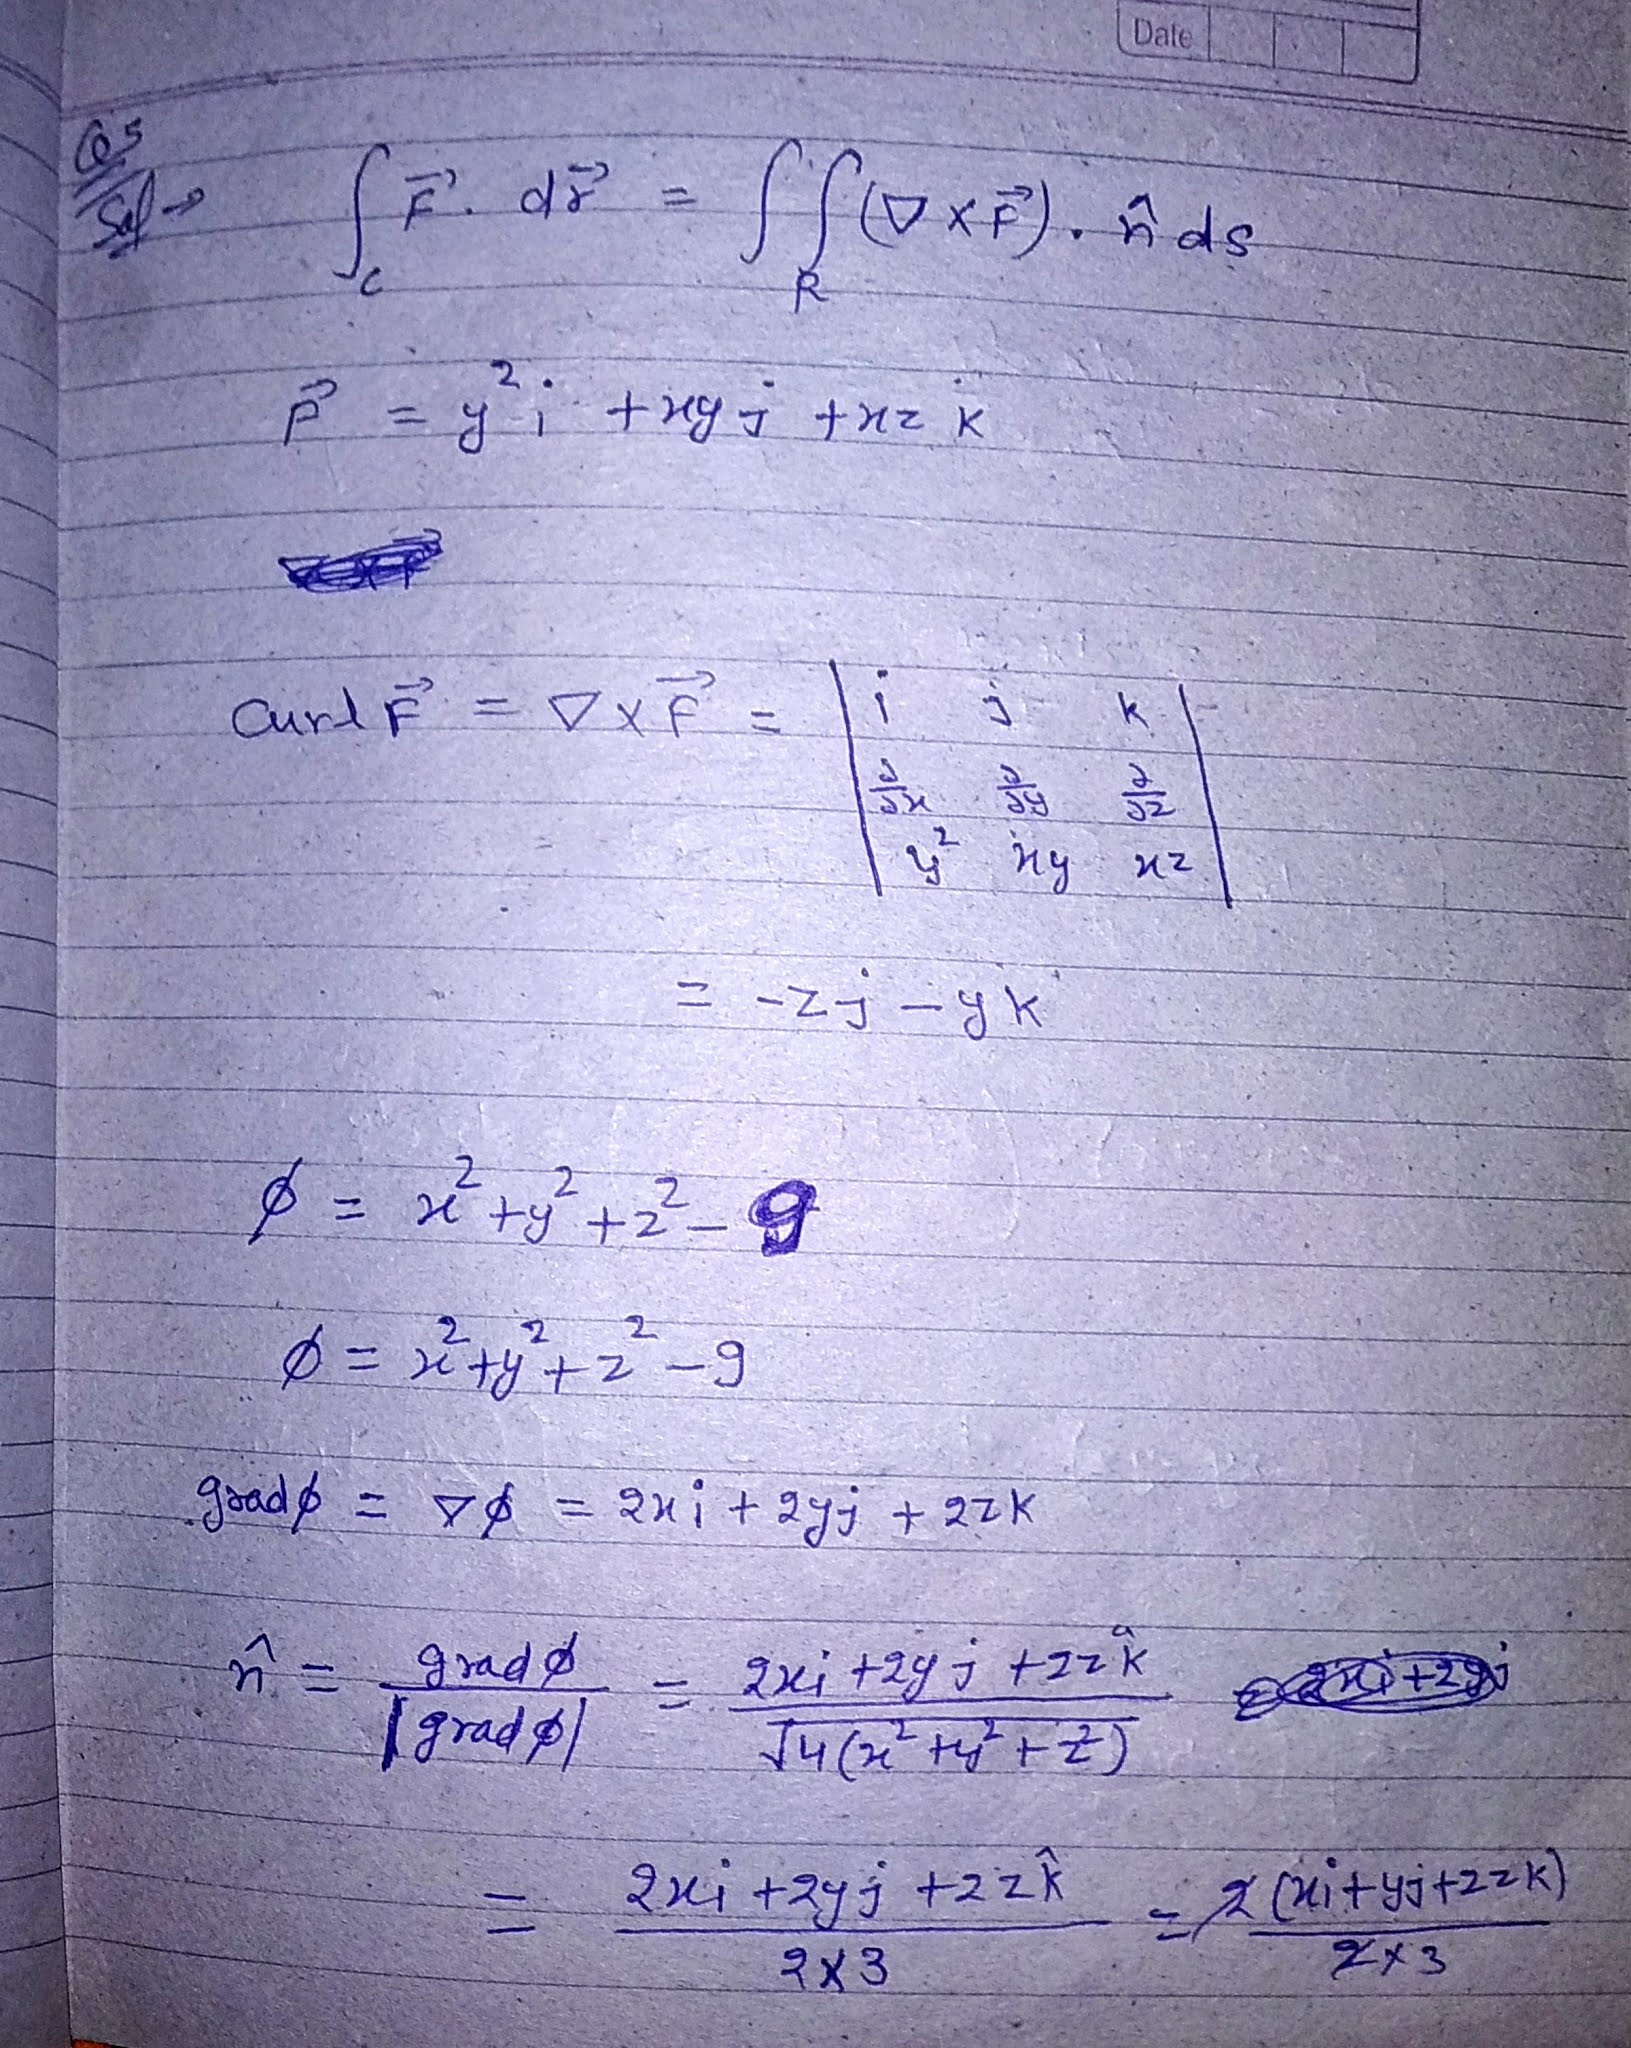 Date
Q5
Sol→ ∫_C F⃗. dr⃗ = ∫∫_R (∇×F⃗). n̂ ds
F⃗ = y²i + xyj + xz k
Curl F⃗ = ∇×F⃗ = | i j k |
| ∂/∂x ∂/∂y ∂/∂z |
| y² xy xz |
= -zj - yk
ϕ = x²+y²+z²-9
ϕ = x²+y²+z²-9
gradϕ = ∇ϕ = 2xi + 2yj + 2zk
n̂ = gradϕ/|gradϕ| = (2xi+2yj+2zk̂)/√4(x²+y²+z²)
= (2xi+2yj+2zk̂)/(2×3) = 2(xi+yj+2zk)/(2×3)